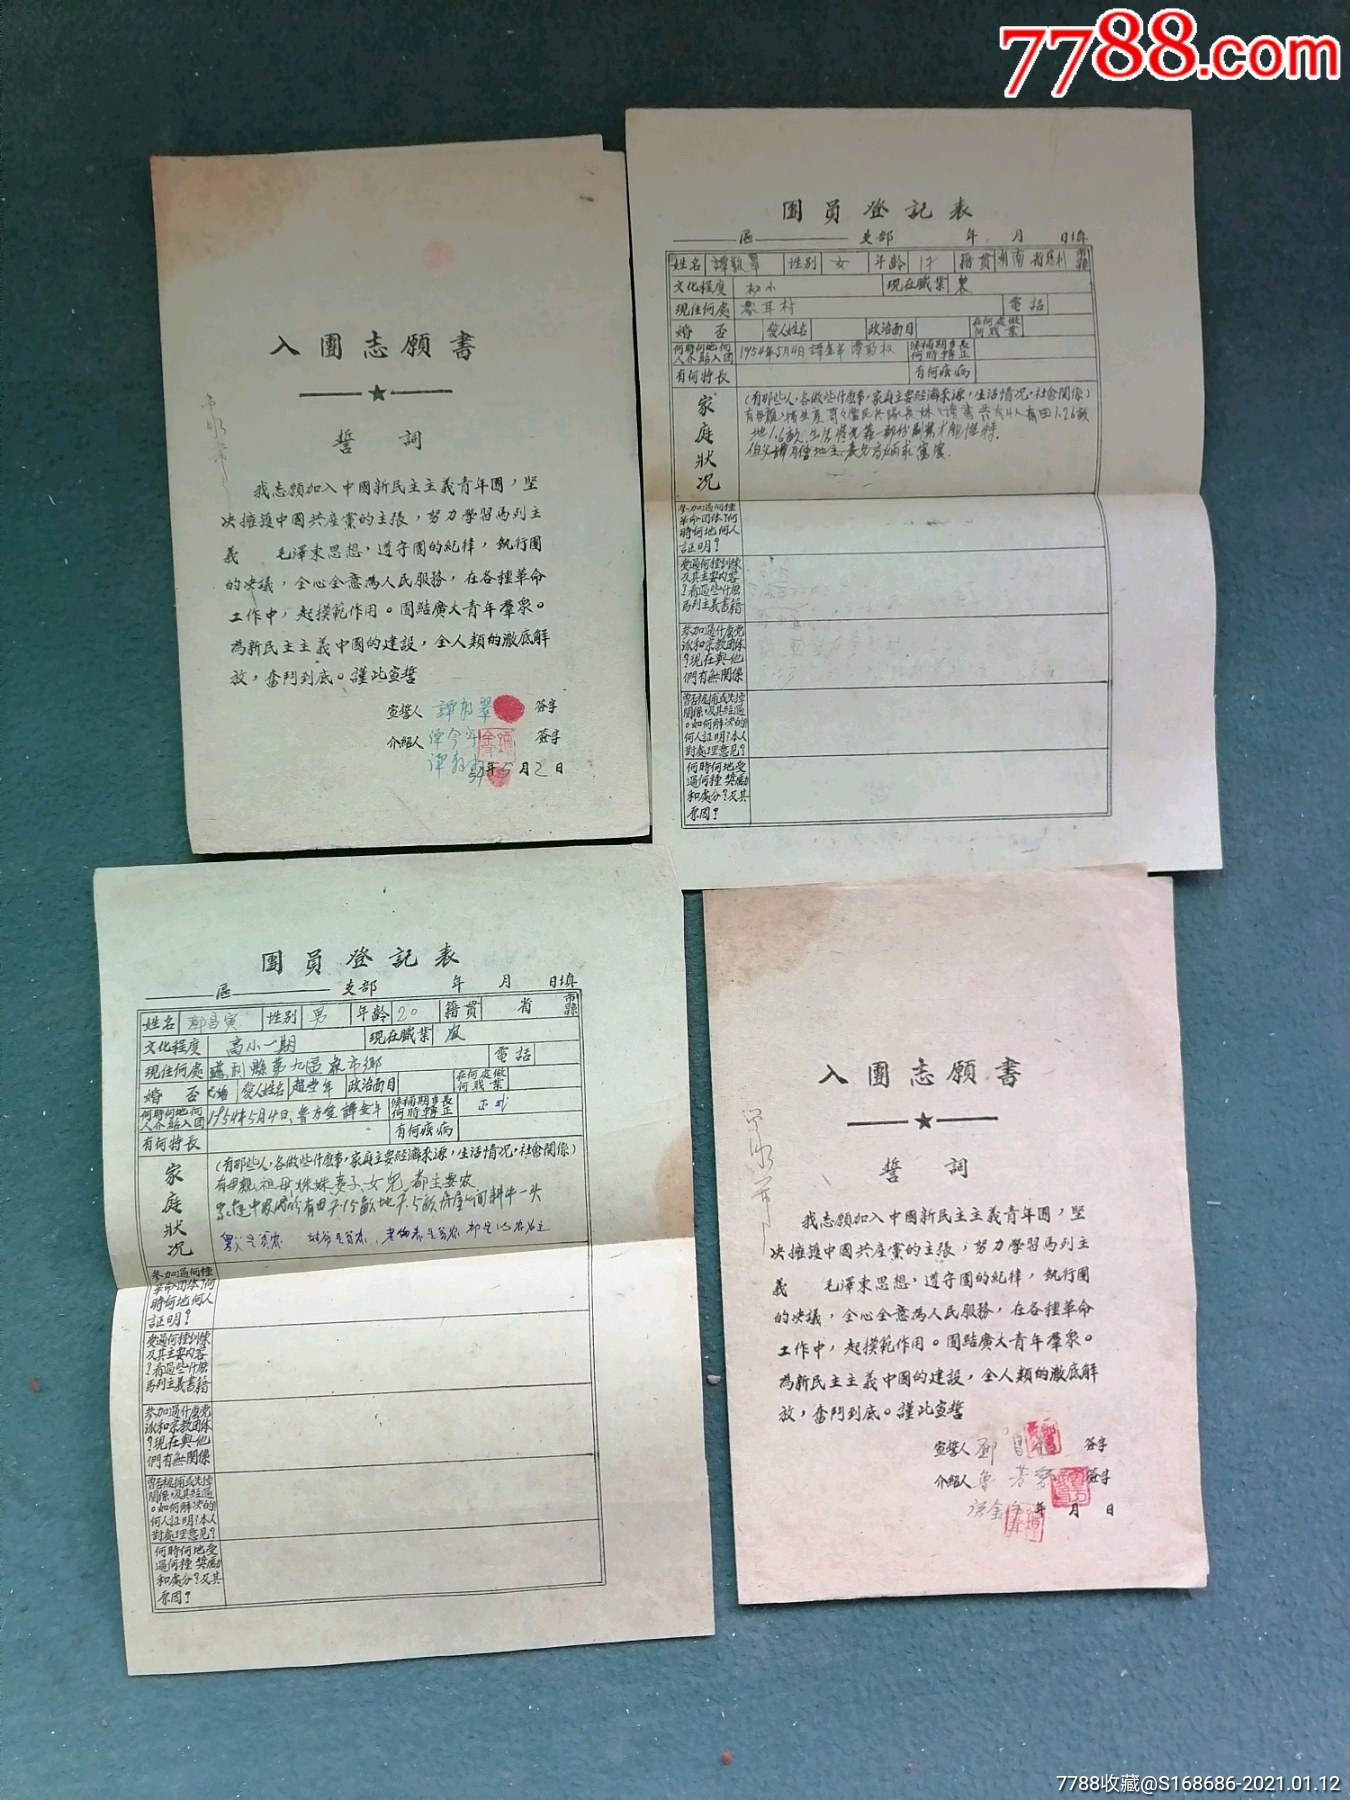 7788.com
入團志願書
誓詞
我志願加入中國新民主主義青年團，堅
决擁護中國共產黨的主張，努力學習馬列主
義　毛澤東思想，遵守團的紀律，執行團
的决議，全心全意為人民服務，在各種革命
工作中，起模範作用。團結廣大青年羣衆。
為新民主主義中國的建設，全人類的澈底解
放，奮鬥到底。謹此宣誓
宣誓人 簽字
介紹人 譚今年 簽字
年5月2日
團員登記表
區 支部 年 月 日填
姓名 性別 女 年齡 17 籍貫 湖南省慈利 市縣
文化程度 初小 現在職業 農
現住何處 電話
婚否 愛人姓名 政治面目 在何處做何職業
何時何地何人介紹入團 1954年5月4日 譚金年 候補期多長何時轉正
有何特長 有何疾病
家庭狀况
(有那些人，各做些什麽事，家庭主要經濟來源，生活情况，社會關係)
參加過何種革命團体？何時何地何人証明？
受過何種訓練及其主要内容？看過些什麽馬列主義書籍
參加過什麽党派和宗教团体？現在與他們有無關係
曾否被捕或失掉關係，及其經過。如何解决的？何人証明？本人對處理意見？
何時何地受過何種獎勵和處分？及其原因？
團員登記表
區 支部 年 月 日填
姓名 鄧昌寅 性別 男 年齡 20 籍貫 省 市縣
文化程度 高小一期 現在職業 農
現住何處 慈利縣第九區 市鄉 電話
婚否 已婚 愛人姓名 政治面目 在何處做何職業
何時何地何人介紹入團 1954年5月4日、魯方 譚金年 候補期多長何時轉正 正式
有何特長 有何疾病
家庭狀况
(有那些人，各做些什麽事，家庭主要經濟來源，生活情况，社會關係)
有母親祖母妹妹妻子女兒 都主要農
參加過何種革命團体？何時何地何人証明？
受過何種訓練及其主要内容？看過些什麽馬列主義書籍
參加過什麽党派和宗教团体？現在與他們有無關係
曾否被捕或失掉關係，及其經過。如何解决的？何人証明？本人對處理意見？
何時何地受過何種獎勵和處分？及其原因？
入團志願書
誓詞
我志願加入中國新民主主義青年團，堅
决擁護中國共產黨的主張，努力學習馬列主
義　毛澤東思想，遵守團的紀律，執行團
的决議，全心全意為人民服務，在各種革命
工作中，起模範作用。團結廣大青年羣衆。
為新民主主義中國的建設，全人類的澈底解
放，奮鬥到底。謹此宣誓
宣誓人 鄧昌 簽字
介紹人 魯芳 簽字
年 月 日
7788收藏@S168686-2021.01.12